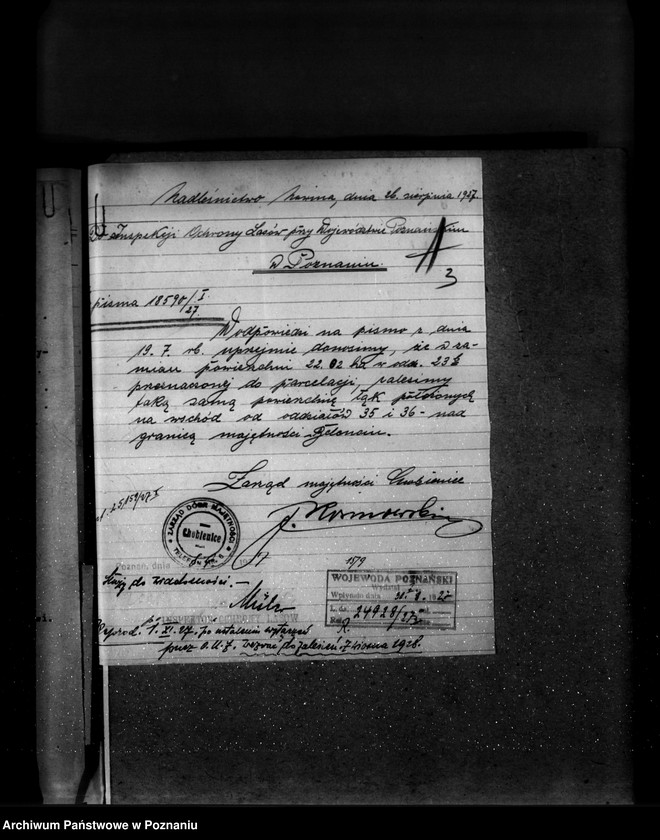 Nadleśnictwo dnia 26. sierpnia 1927.
Do Inspekcji Ochrony Lasów przy Województwie Poznańskim
w Poznaniu.
3
pisma 18590/I
27.
W odpowiedzi na pismo z dnia
19. 7. rb. uprzejmie donosimy, że w za-
mian powierzchni 22.02 ha w odz. 23 b
przeznaczonej do parcelacji, zalesimy
taką samą powierzchnię łąk położonych
na wschód od oddziałów 35 i 36 - nad
granicą majętności
Zarząd majętności Chobienice
ZARZĄD DÓBR MAJĘTNOŚCI
Chobienice
TELEFON
Poznań, dnia 19
Służy do wiadomości. -
INSPEKTOR OCHRONY LASÓW
WOJEWODA POZNAŃSKI
Wydział
Wpłynęło dnia 31. 8. 1927
L. dz. 24928/27 zał.
1. XI. 27. po ustaleniu
przez O.U.Z. wezwać do zalesień. z wiosną 1928.
Archiwum Państwowe w Poznaniu